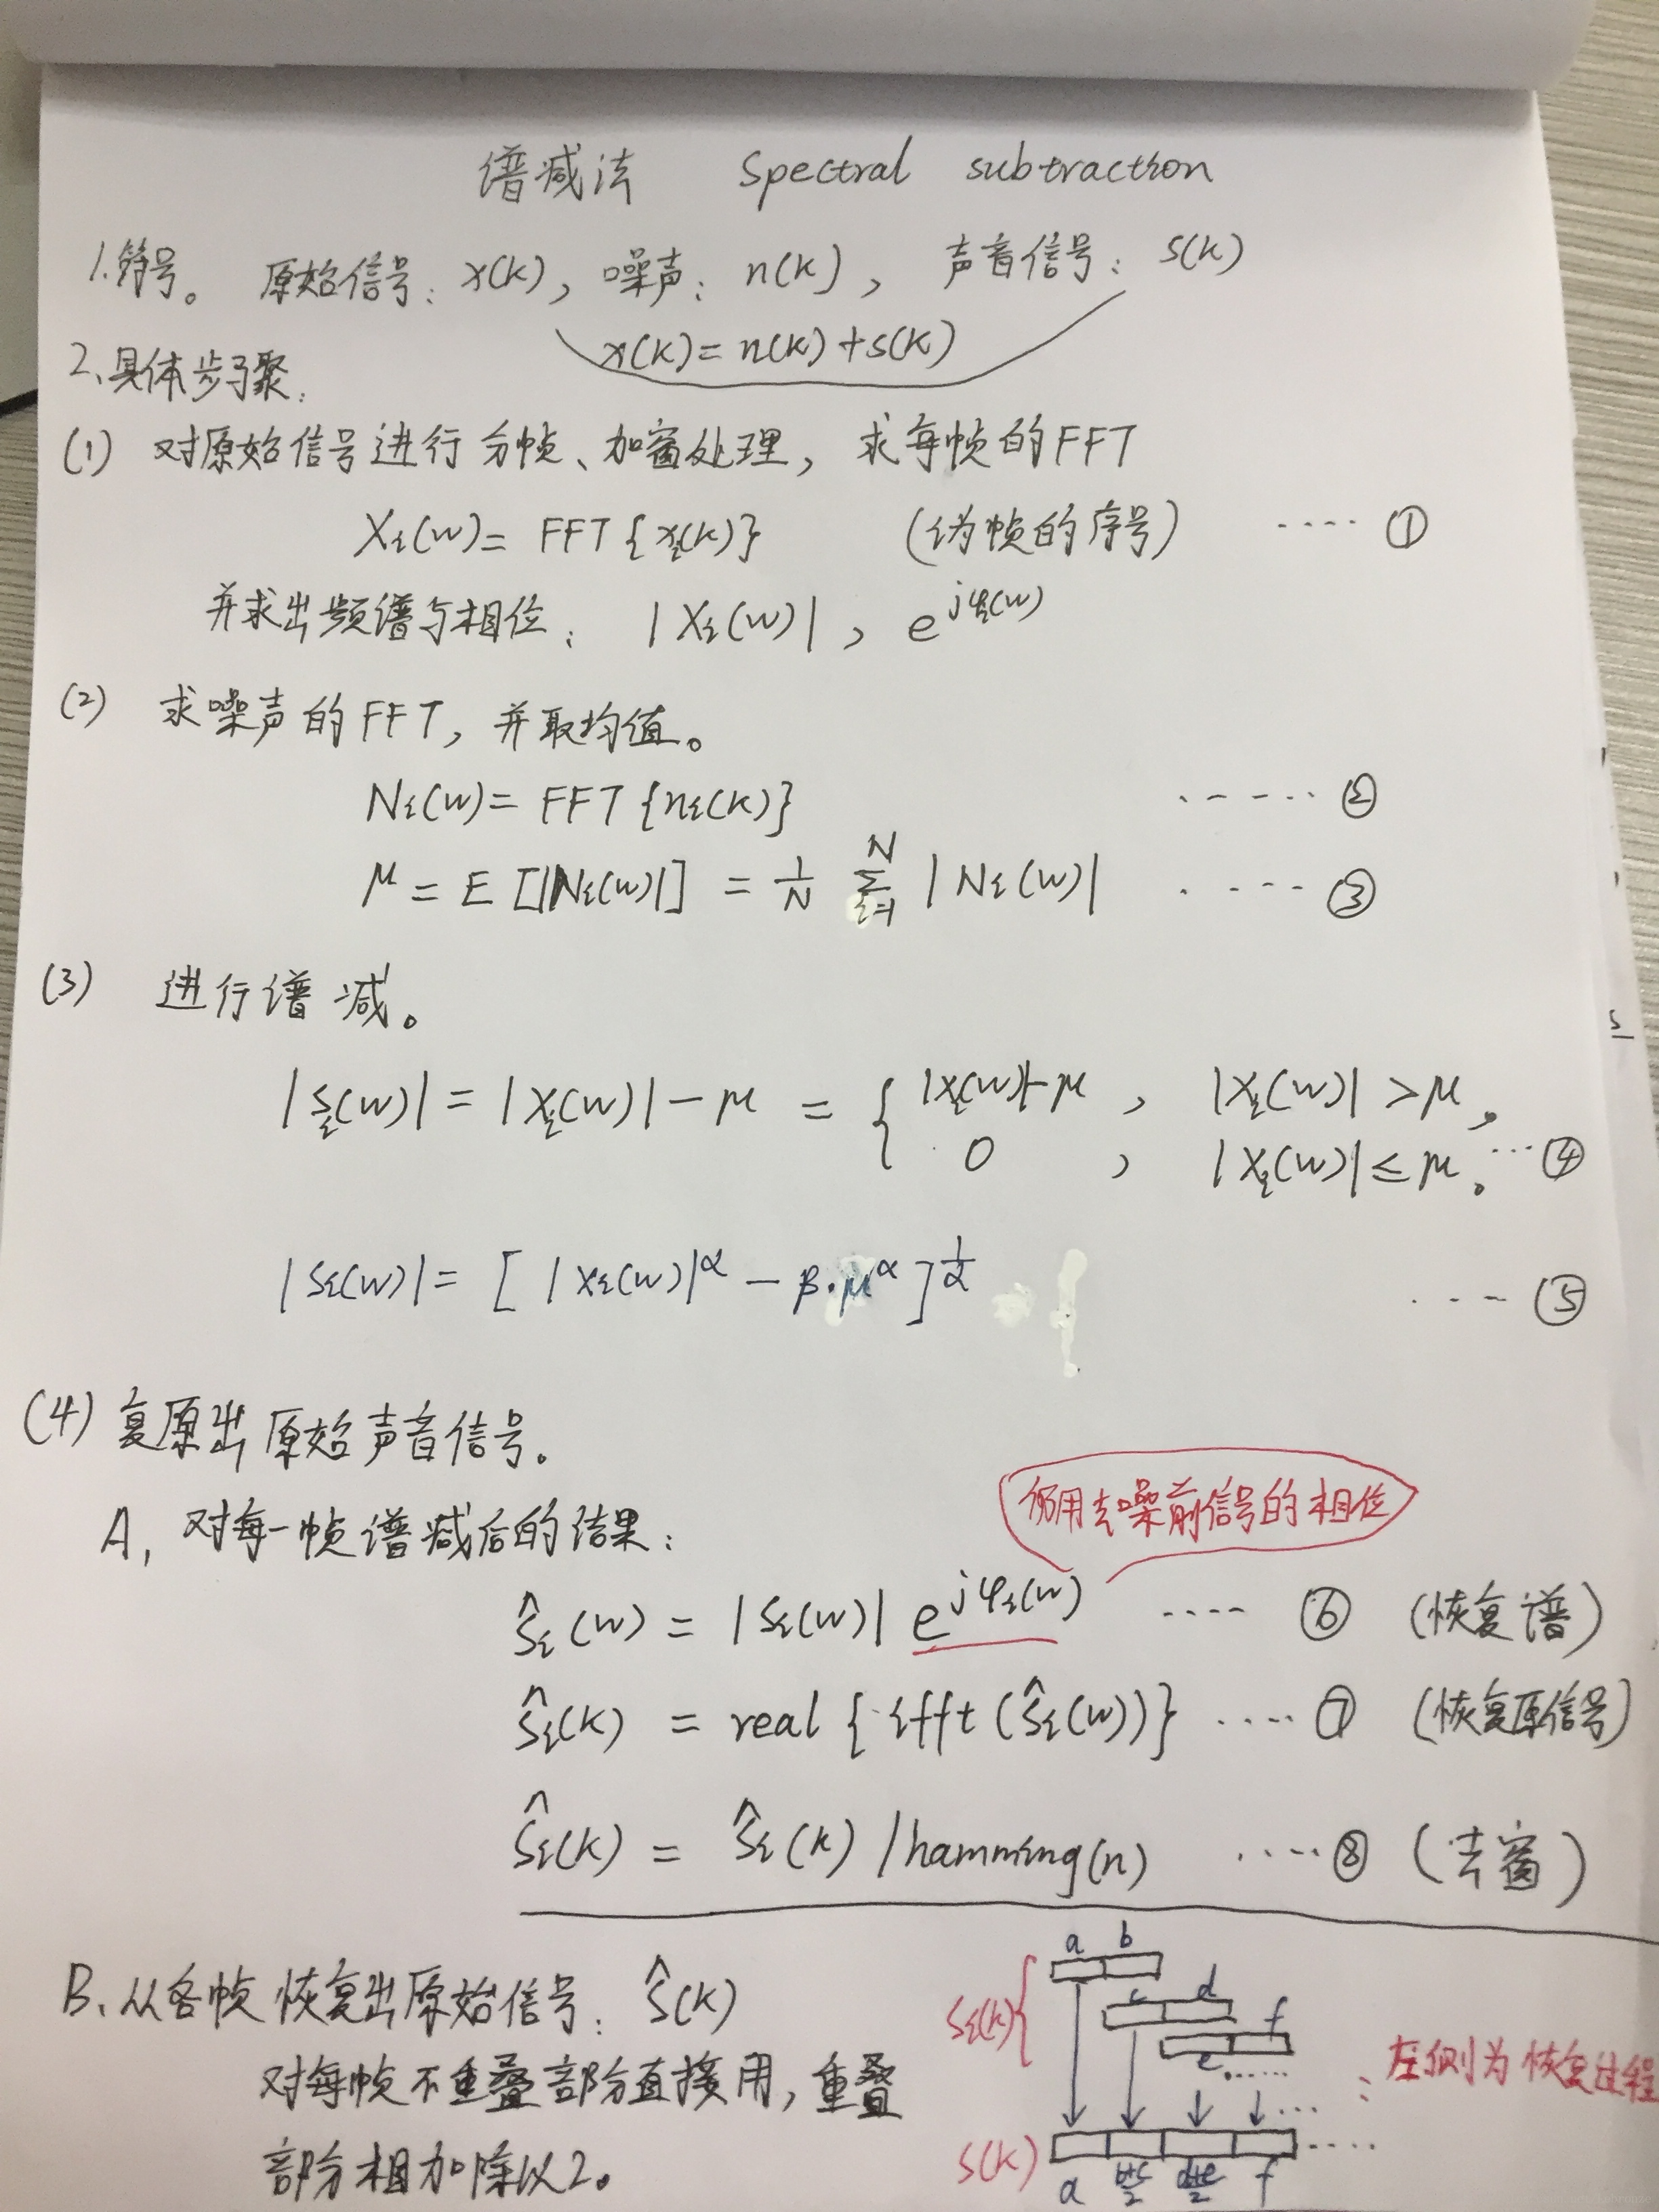 谱减法 Spectral subtraction
1.符号。 原始信号: x(k), 噪声: n(k), 声音信号: s(k)
x(k)=n(k)+s(k)
2、具体步骤:
(1) 对原始信号进行分帧、加窗处理, 求每帧的FFT
Xi(w)= FFT{xi(k)} (i为帧的序号) ···· ①
并求出频谱与相位: |Xi(w)|, e^jφi(w)
(2) 求噪声的FFT, 并取均值。
Ni(w)= FFT{ni(k)} ······ ②
μ = E[|Ni(w)|] = 1/N ∑_{i=1}^N |Ni(w)| ····· ③
(3) 进行谱减。
|Si(w)| = |Xi(w)| - μ = { |Xi(w)|-μ, |Xi(w)| > μ,
0, |Xi(w)| ≤ μ。 ··· ④
|Si(w)| = [ |Xi(w)|^α - β·μ^α ]^1/α ···· ⑤
(4) 复原出原始声音信号。
A, 对每一帧谱减后的结果:
仍用去噪前信号的相位
Ŝi(w) = |Si(w)| e^jφi(w) ···· ⑥ (恢复谱)
ŝi(k) = real{ifft(Ŝi(w))} ···· ⑦ (恢复原信号)
ŝi(k) = ŝi(k) / hamming(n) ···· ⑧ (去窗)
B、从各帧恢复出原始信号: ŝ(k)
对每帧不重叠部分直接用, 重叠
部分相加除以2。
a b
si(k){ c d
f
e ······
··· : 左侧为恢复过程
s(k) ····
a (b+c)/2 (d+e)/2 f